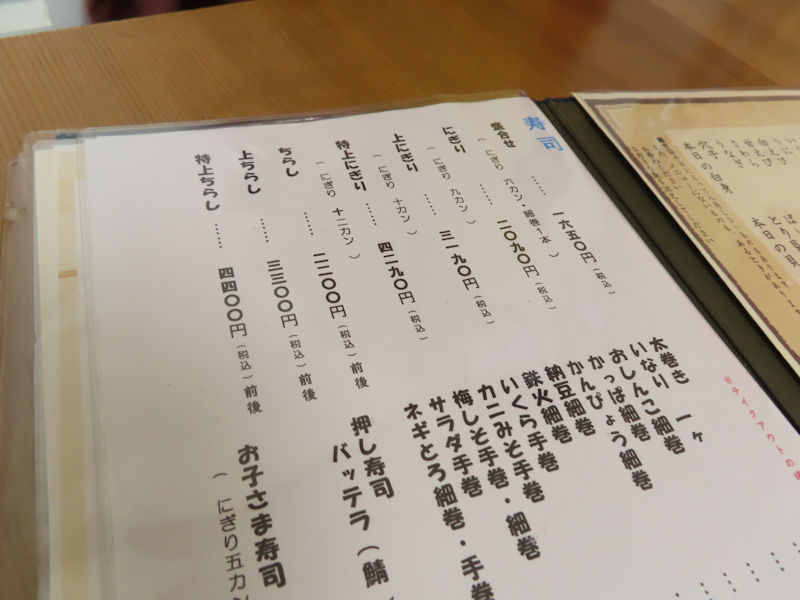 寿司
盛合せ …… 一六五〇円(税込)
(にぎり 六カン・細巻1本)
にぎり …… 二〇九〇円(税込)
(にぎり 九カン)
上にぎり …… 三一九〇円(税込)
(にぎり 十カン)
特上にぎり …… 四二九〇円(税込)
(にぎり 十二カン)
ちらし …… 二二〇〇円(税込)前後
上ちらし …… 三三〇〇円(税込)前後
特上ちらし …… 四四〇〇円(税込)前後
太巻き 一ヶ
いなり
おしんこ細巻
おっぱ
かんぴょう細巻
納豆細巻
鉄火細巻
いくら手巻
カニみそ手巻・細巻
梅しそ手巻
サラダ手巻
ネギとろ細巻・手巻
押し寿司
バッテラ(鯖
お子さま寿司
(にぎり五カン
※テイクアウトの
うなぎ
穴子
本日の白身
とり貝
本日の貝